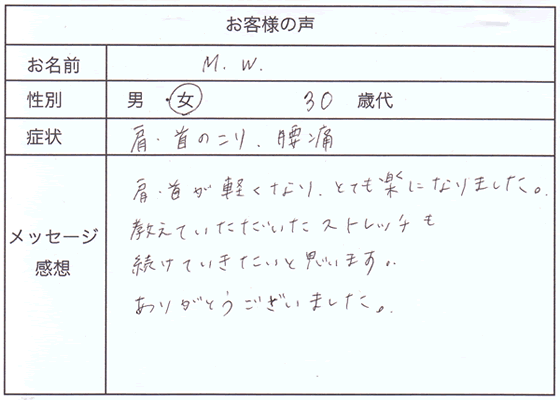 お客様の声
お名前 M. W.
性別 男・女 30 歳代
症状 肩・首のこり、腰痛
メッセージ
感想
肩・首が軽くなり、とても楽になりました。
教えていただいたストレッチも
続けていきたいと思います。
ありがとうございました。